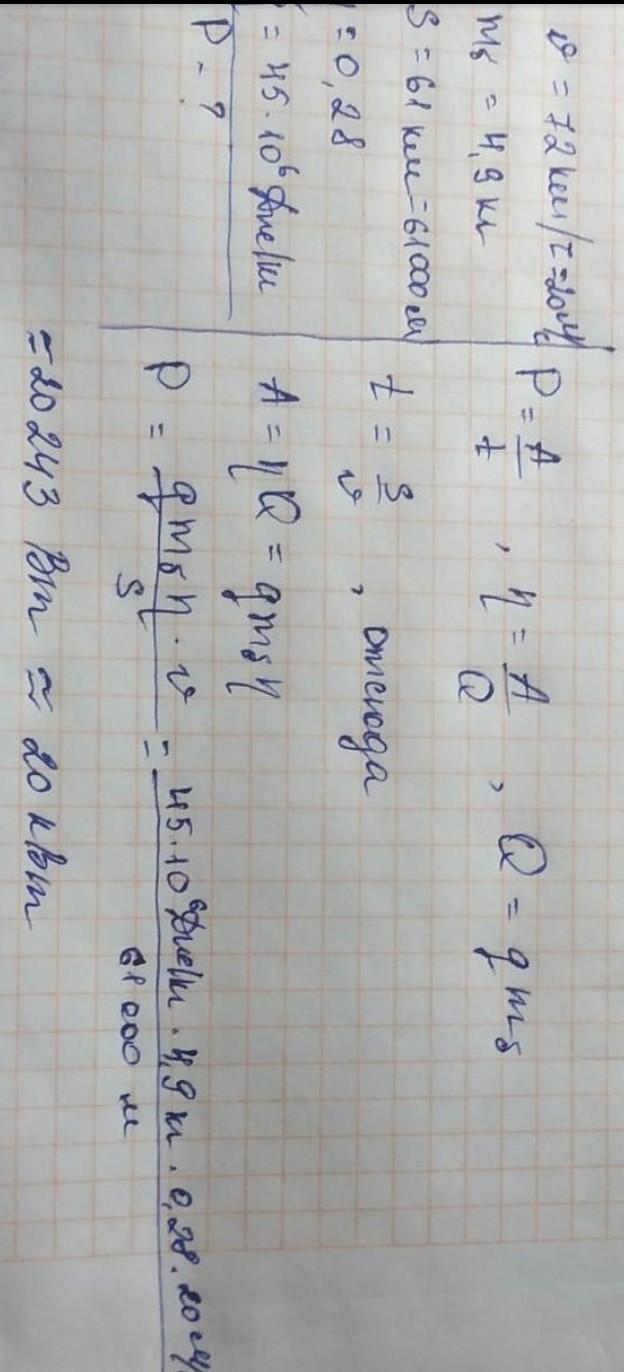 υ = 72 км/ч = 20 м/с
mб = 4,9 кг
S = 61 км = 61000 м
= 0,28
= 45·10⁶ Дж/кг
P - ?
P = A/t , η = A/Q , Q = qmб
t = S/υ , отсюда
A = ηQ = qmбη
P = qmбη·υ/S = 45·10⁶ Дж/кг · 4,9 кг · 0,28 · 20 м/ / 61000 м
= 20243 Вт ≈ 20 кВт